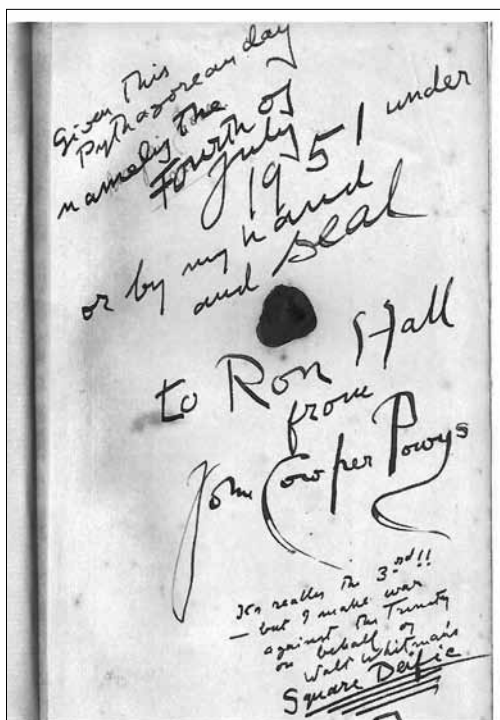 Given this
Pythagorean day
namely the
Fourth of
July
1951 under
or by my hand
and seal
to Ron Hall
from
John Cowper Powys
It's really the 3rd!!
– but I make war
against the Trinity
on behalf of
Walt Whitman's
Square Deific